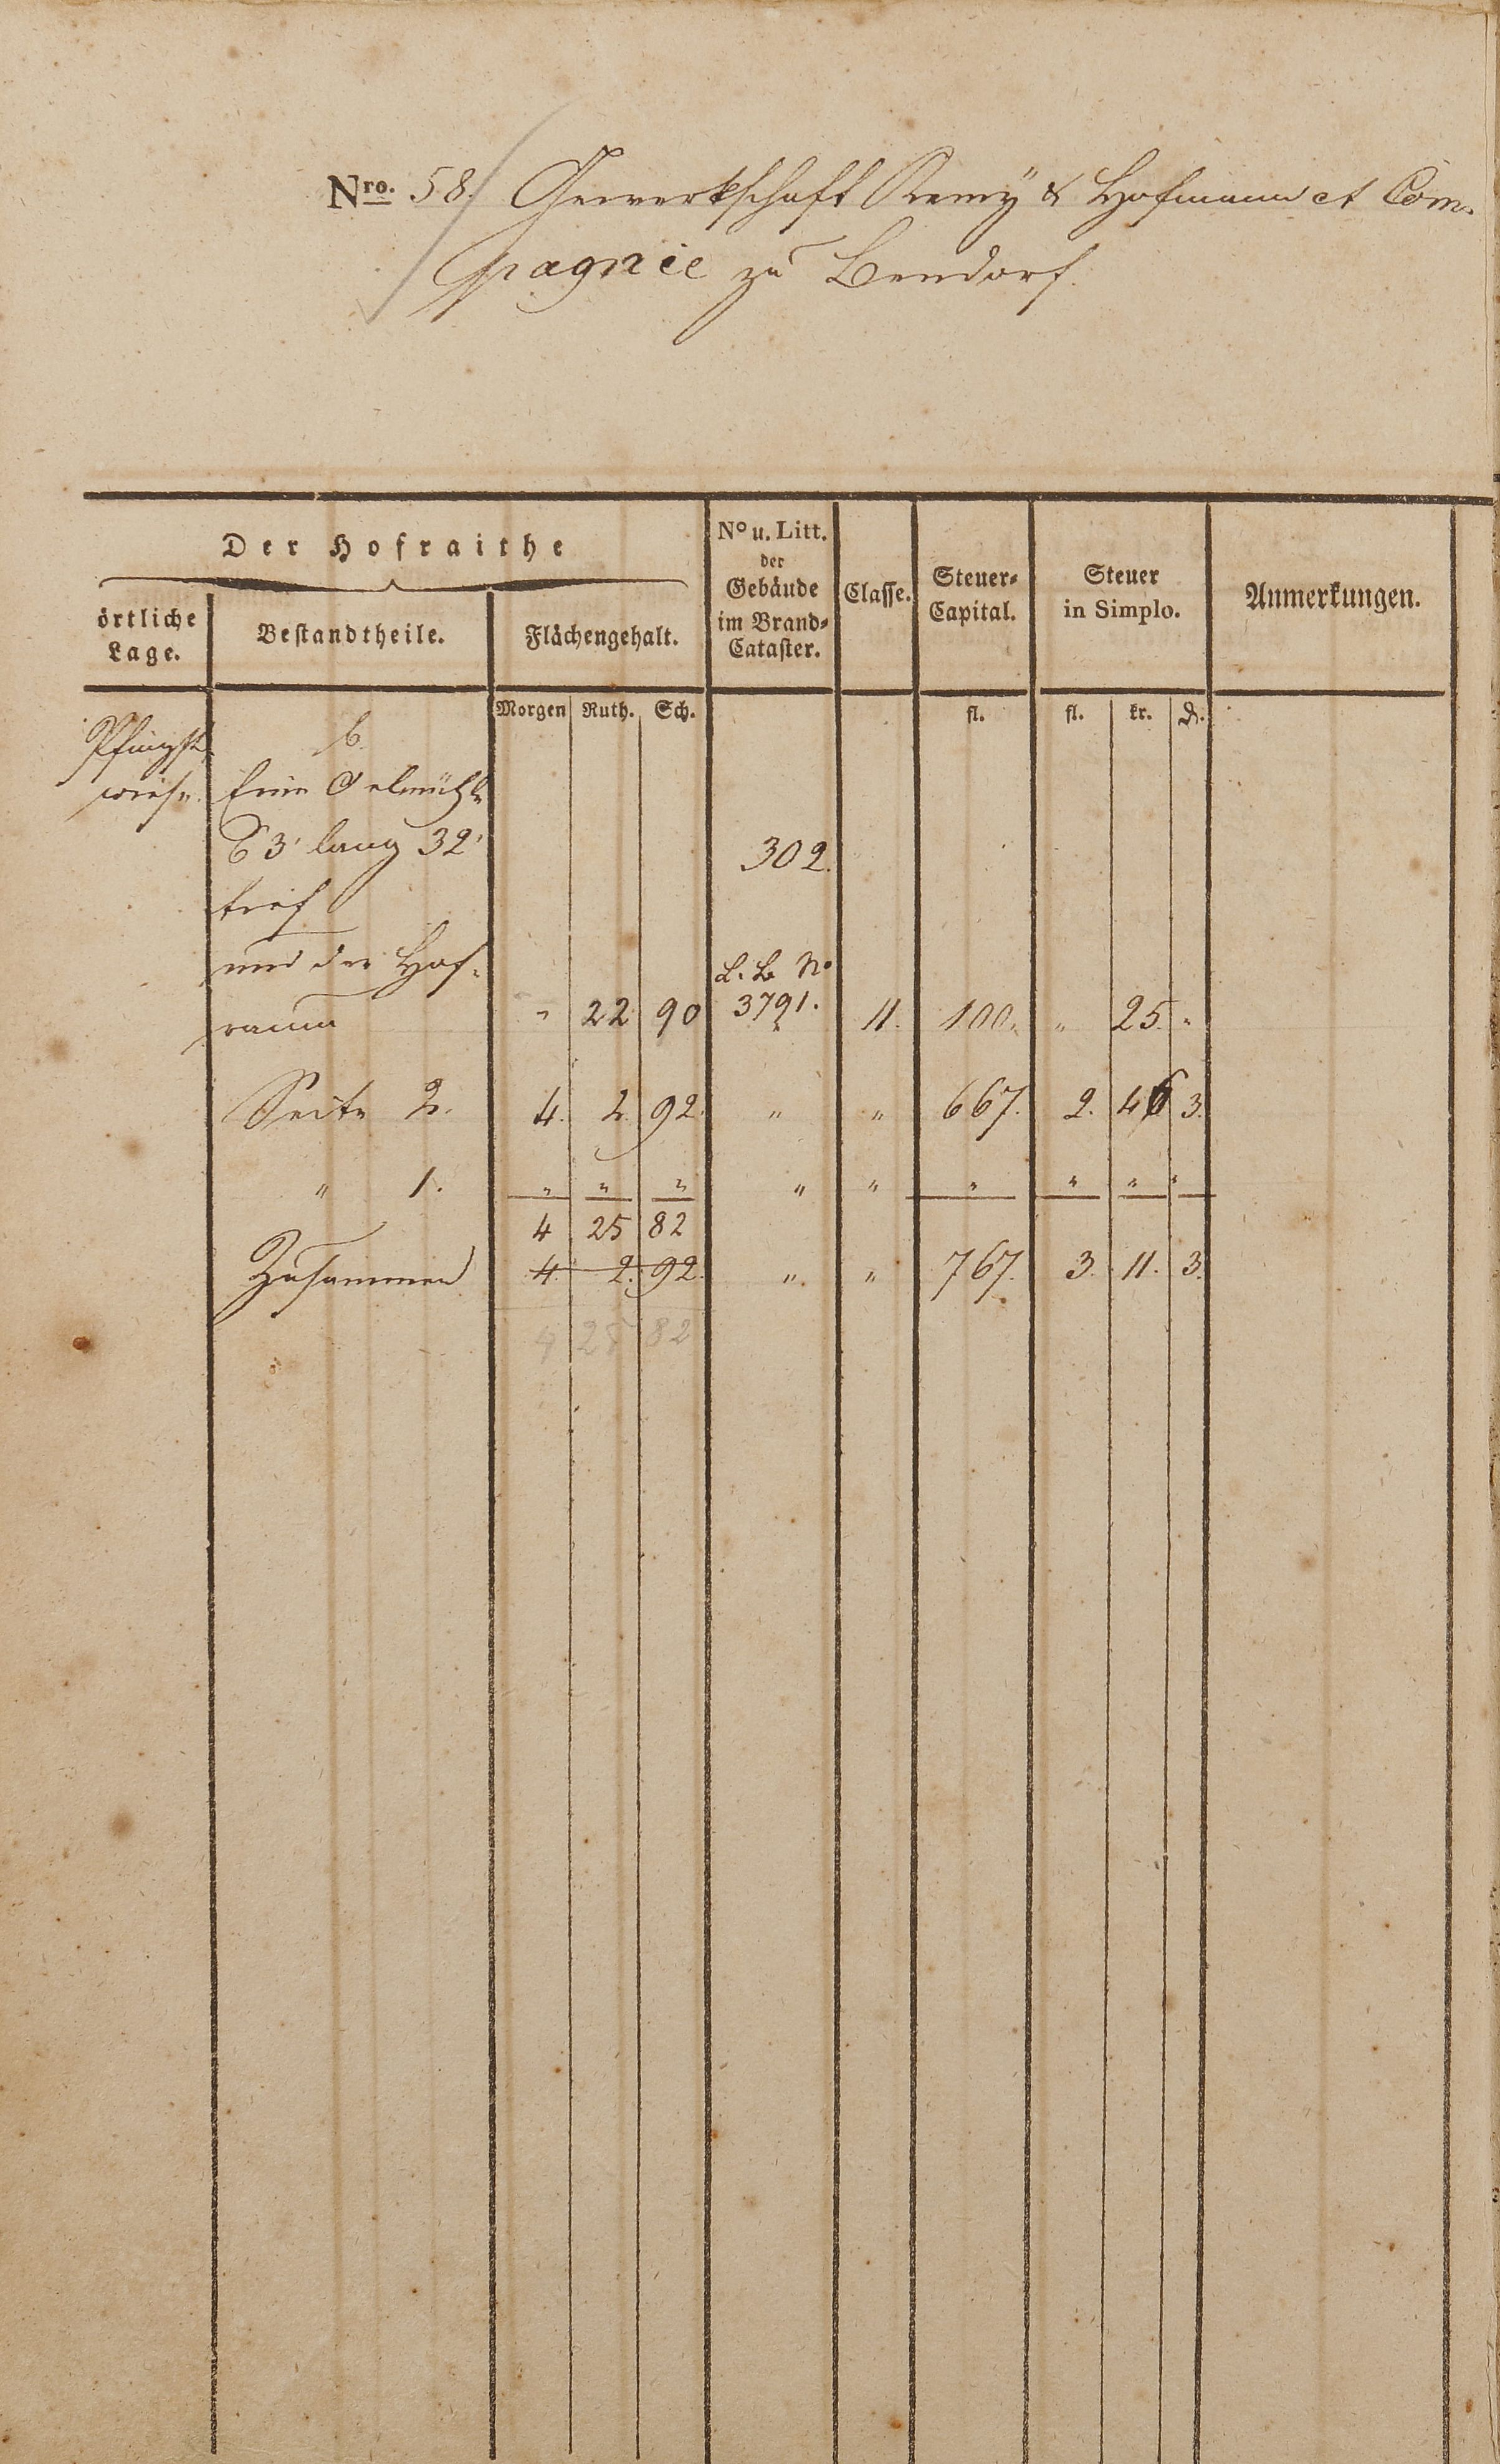 Nro. 58. Gewerkschaft Remÿ & Hofmann et Com-
pagnie zu Bendorf.
Der Hofraithe
örtliche Lage.
Bestandtheile.
Flächengehalt.
No u. Litt. der Gebäude im Brand-Cataster.
Classe.
Steuer-Capital.
Steuer in Simplo.
Anmerkungen.
Morgen Ruth. Sch. fl. fl. kr. d.
Pfingst b.
wiese. Eine Oelmühle
63' lang 32' 302.
tief
und der Hof- L. B. No
raum " 22 90 3791. 11. 100. " 25. "
Seite 2. 4. 2. 92. " " 667. 2. 46 3.
" 1. " " " " " " " " "
4 25 82
Zusammen 4. 2. 92. " " 767. 3. 11. 3.
4 25 82